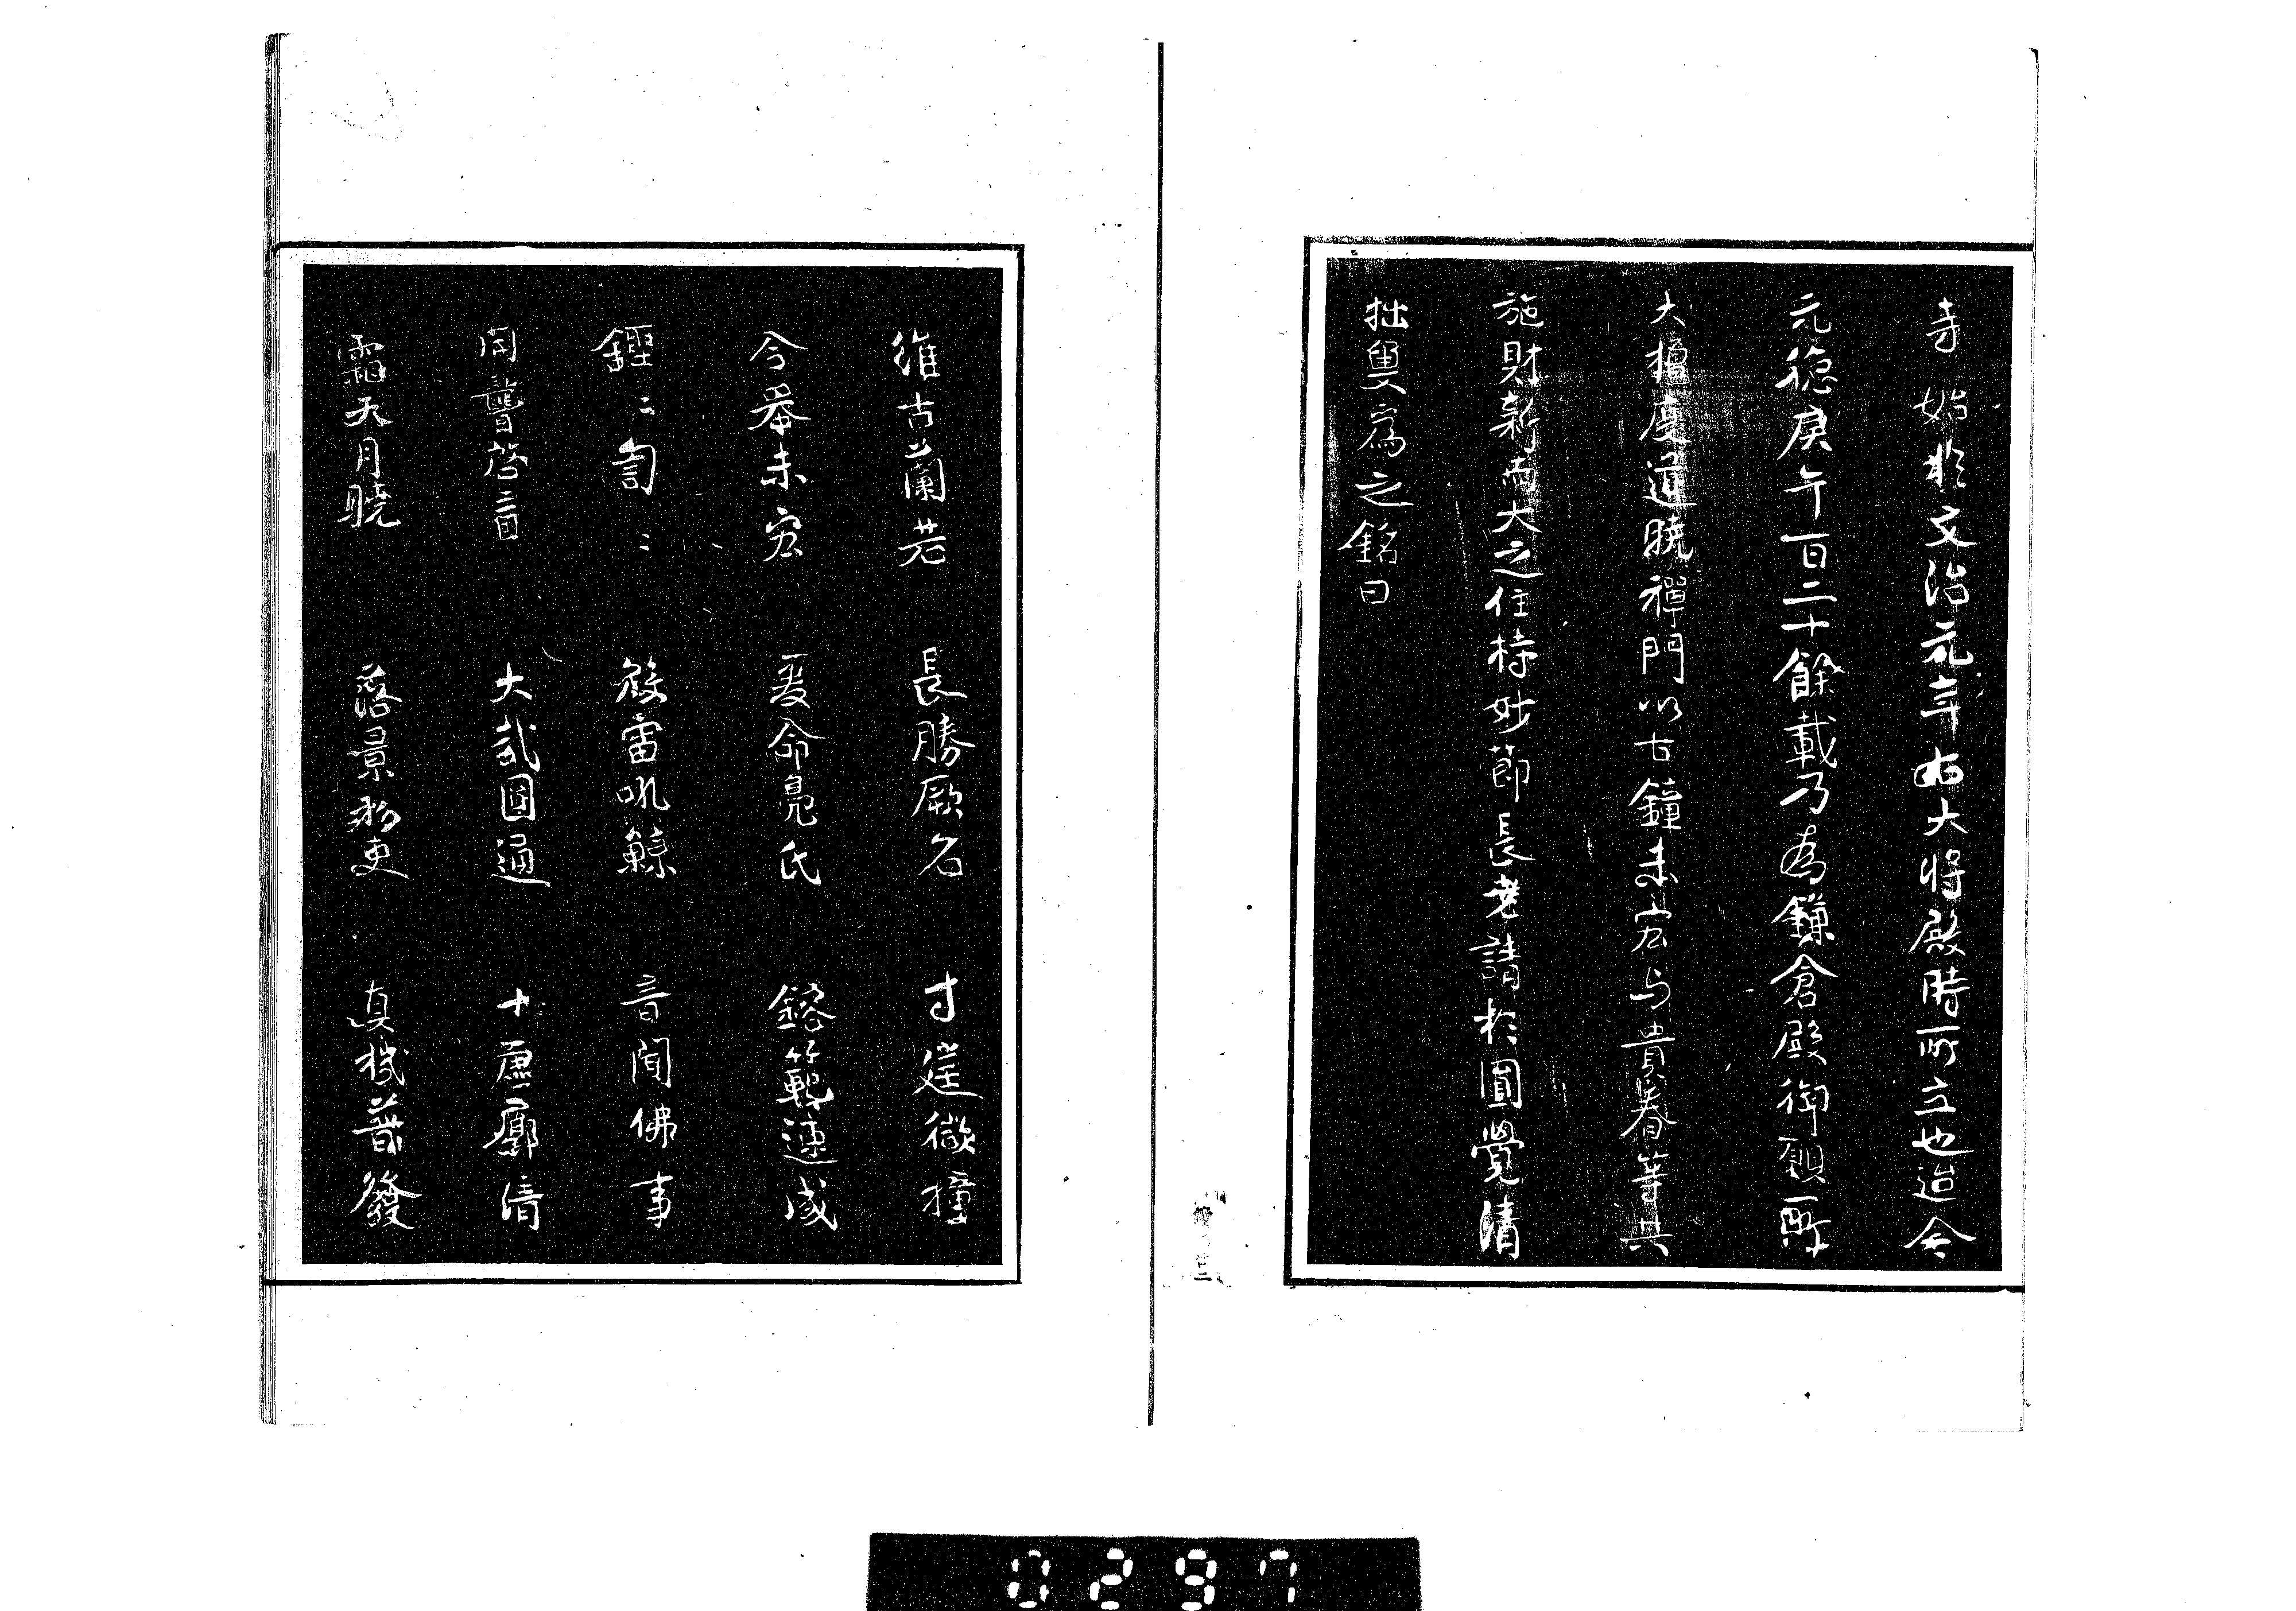 寺始於文治元年右大将殿時所立也迨今
元徳庚午一百二十餘載乃為鎌倉殿御願所
大檀度道暁禪門以古鐘未宏与貴眷等共
施財新而大之住持妙節長老請於圓覺清
拙叟為之銘曰
維古蘭若　長勝厥名　寸莛微撞
今舉未宏　爰命鳧氏　鎔範速成
鏗〻訇〻　殷雷吼鯨　音聞佛事
開聾啓盲　大哉圓通　十虚廓清
霜天月曉　落景初更　真機普發
0297